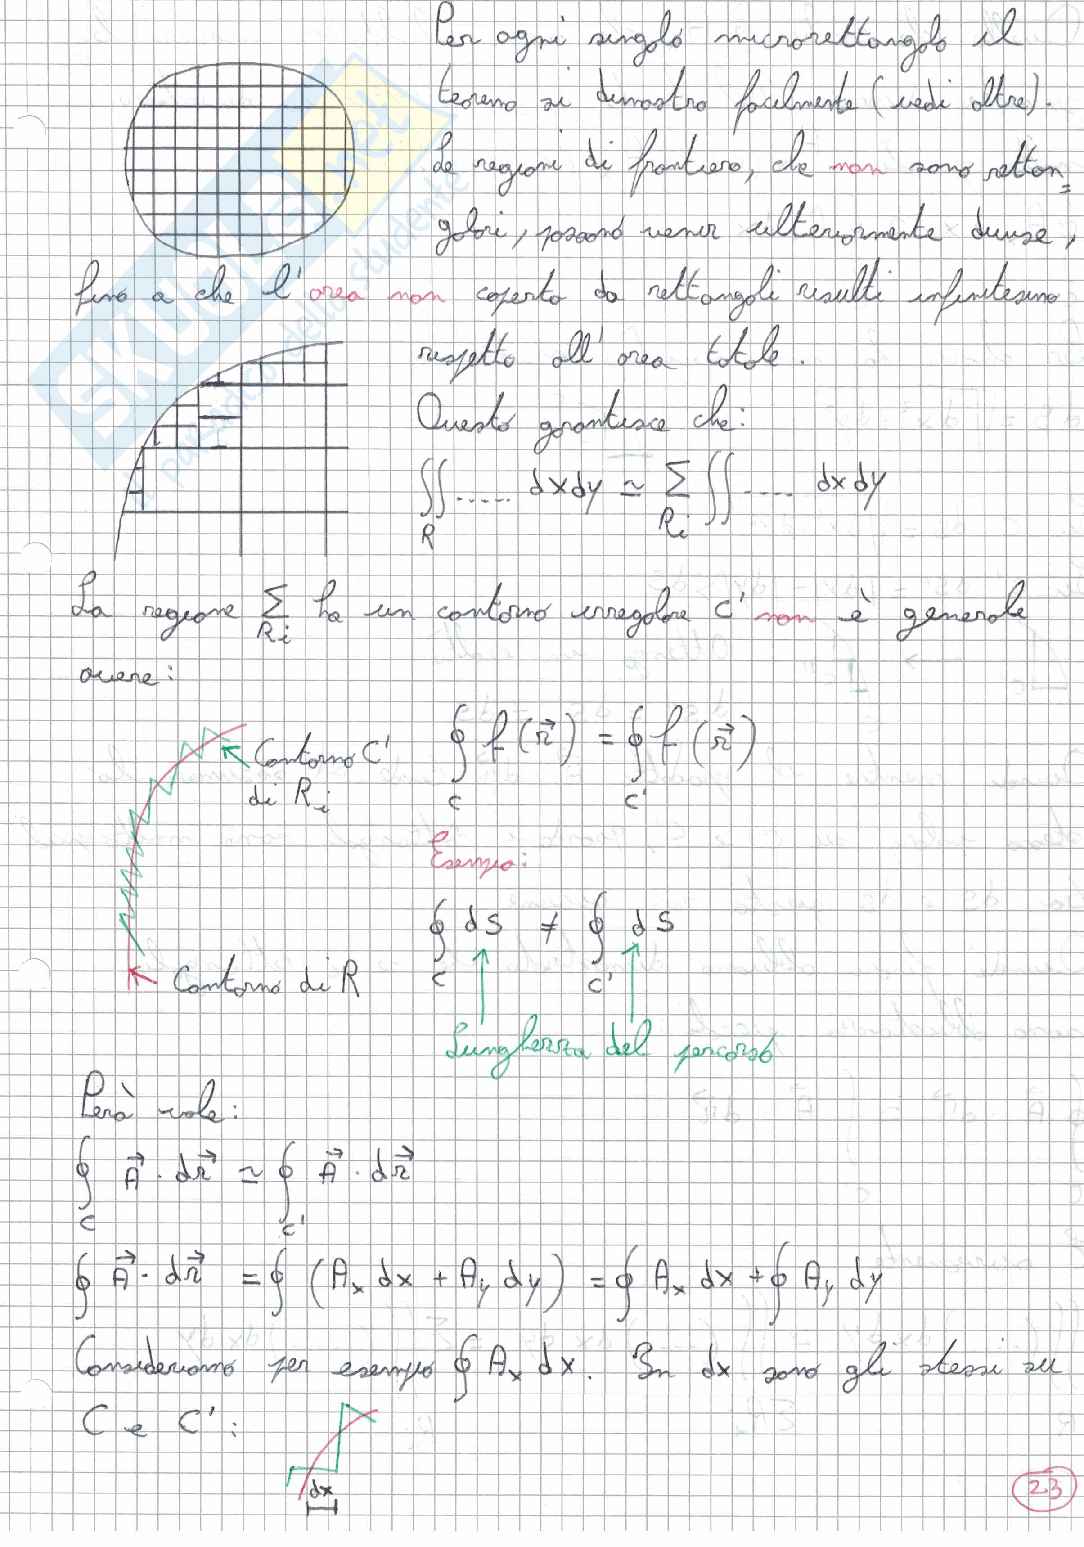 Per ogni singolo microrettangolo il
teorema si dimostra facilmente (vedi oltre).
Le regioni di frontiera, che non sono rettan=
golari, possono venir ulteriormente divise,
fino a che l'area non coperta da rettangoli risulti infinitesima
rispetto all'area totale.
Questo garantisce che:
∬_R ..... dxdy ≃ Σ_{Ri} ∬ .... dxdy
La regione Σ_{Ri} ha un contorno irregolare C' non è generale
avere:
∮_C f(r⃗) = ∮_{C'} f(r⃗)
Contorno C'
di Ri
Esempio:
∮_C dS ≠ ∮_{C'} dS
Contorno di R
Lunghezza del percorso
Però vale:
∮_C A⃗ · dr⃗ ≃ ∮_{C'} A⃗ · dr⃗
∮ A⃗ · dr⃗ = ∮ (Ax dx + Ay dy) = ∮ Ax dx + ∮ Ay dy
Consideriamo per esempio ∮ Ax dx. In dx sono gli stessi su
C e C':
dx
23
SKUOLA.net